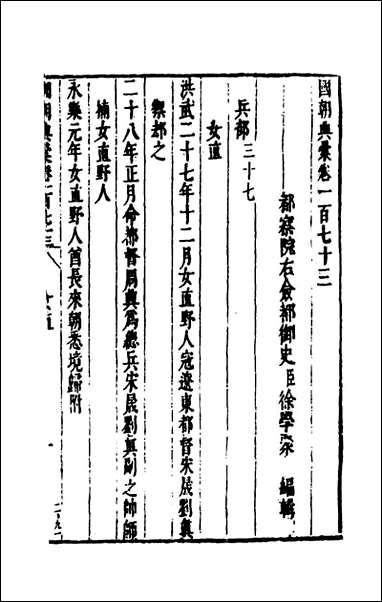 國朝典彙卷一百七十三
都察院右僉都御史臣徐學聚 編輯
兵部三十七
女直
洪武二十七年十二月女直野人寇遼東都督宋晟劉真
禦却之
二十八年正月命都督周興為總兵宋晟劉真副之帥師
捕女直野人
永樂元年女直野人酋長來朝悉境歸附
國朝典彙卷一百七十三 女直 一